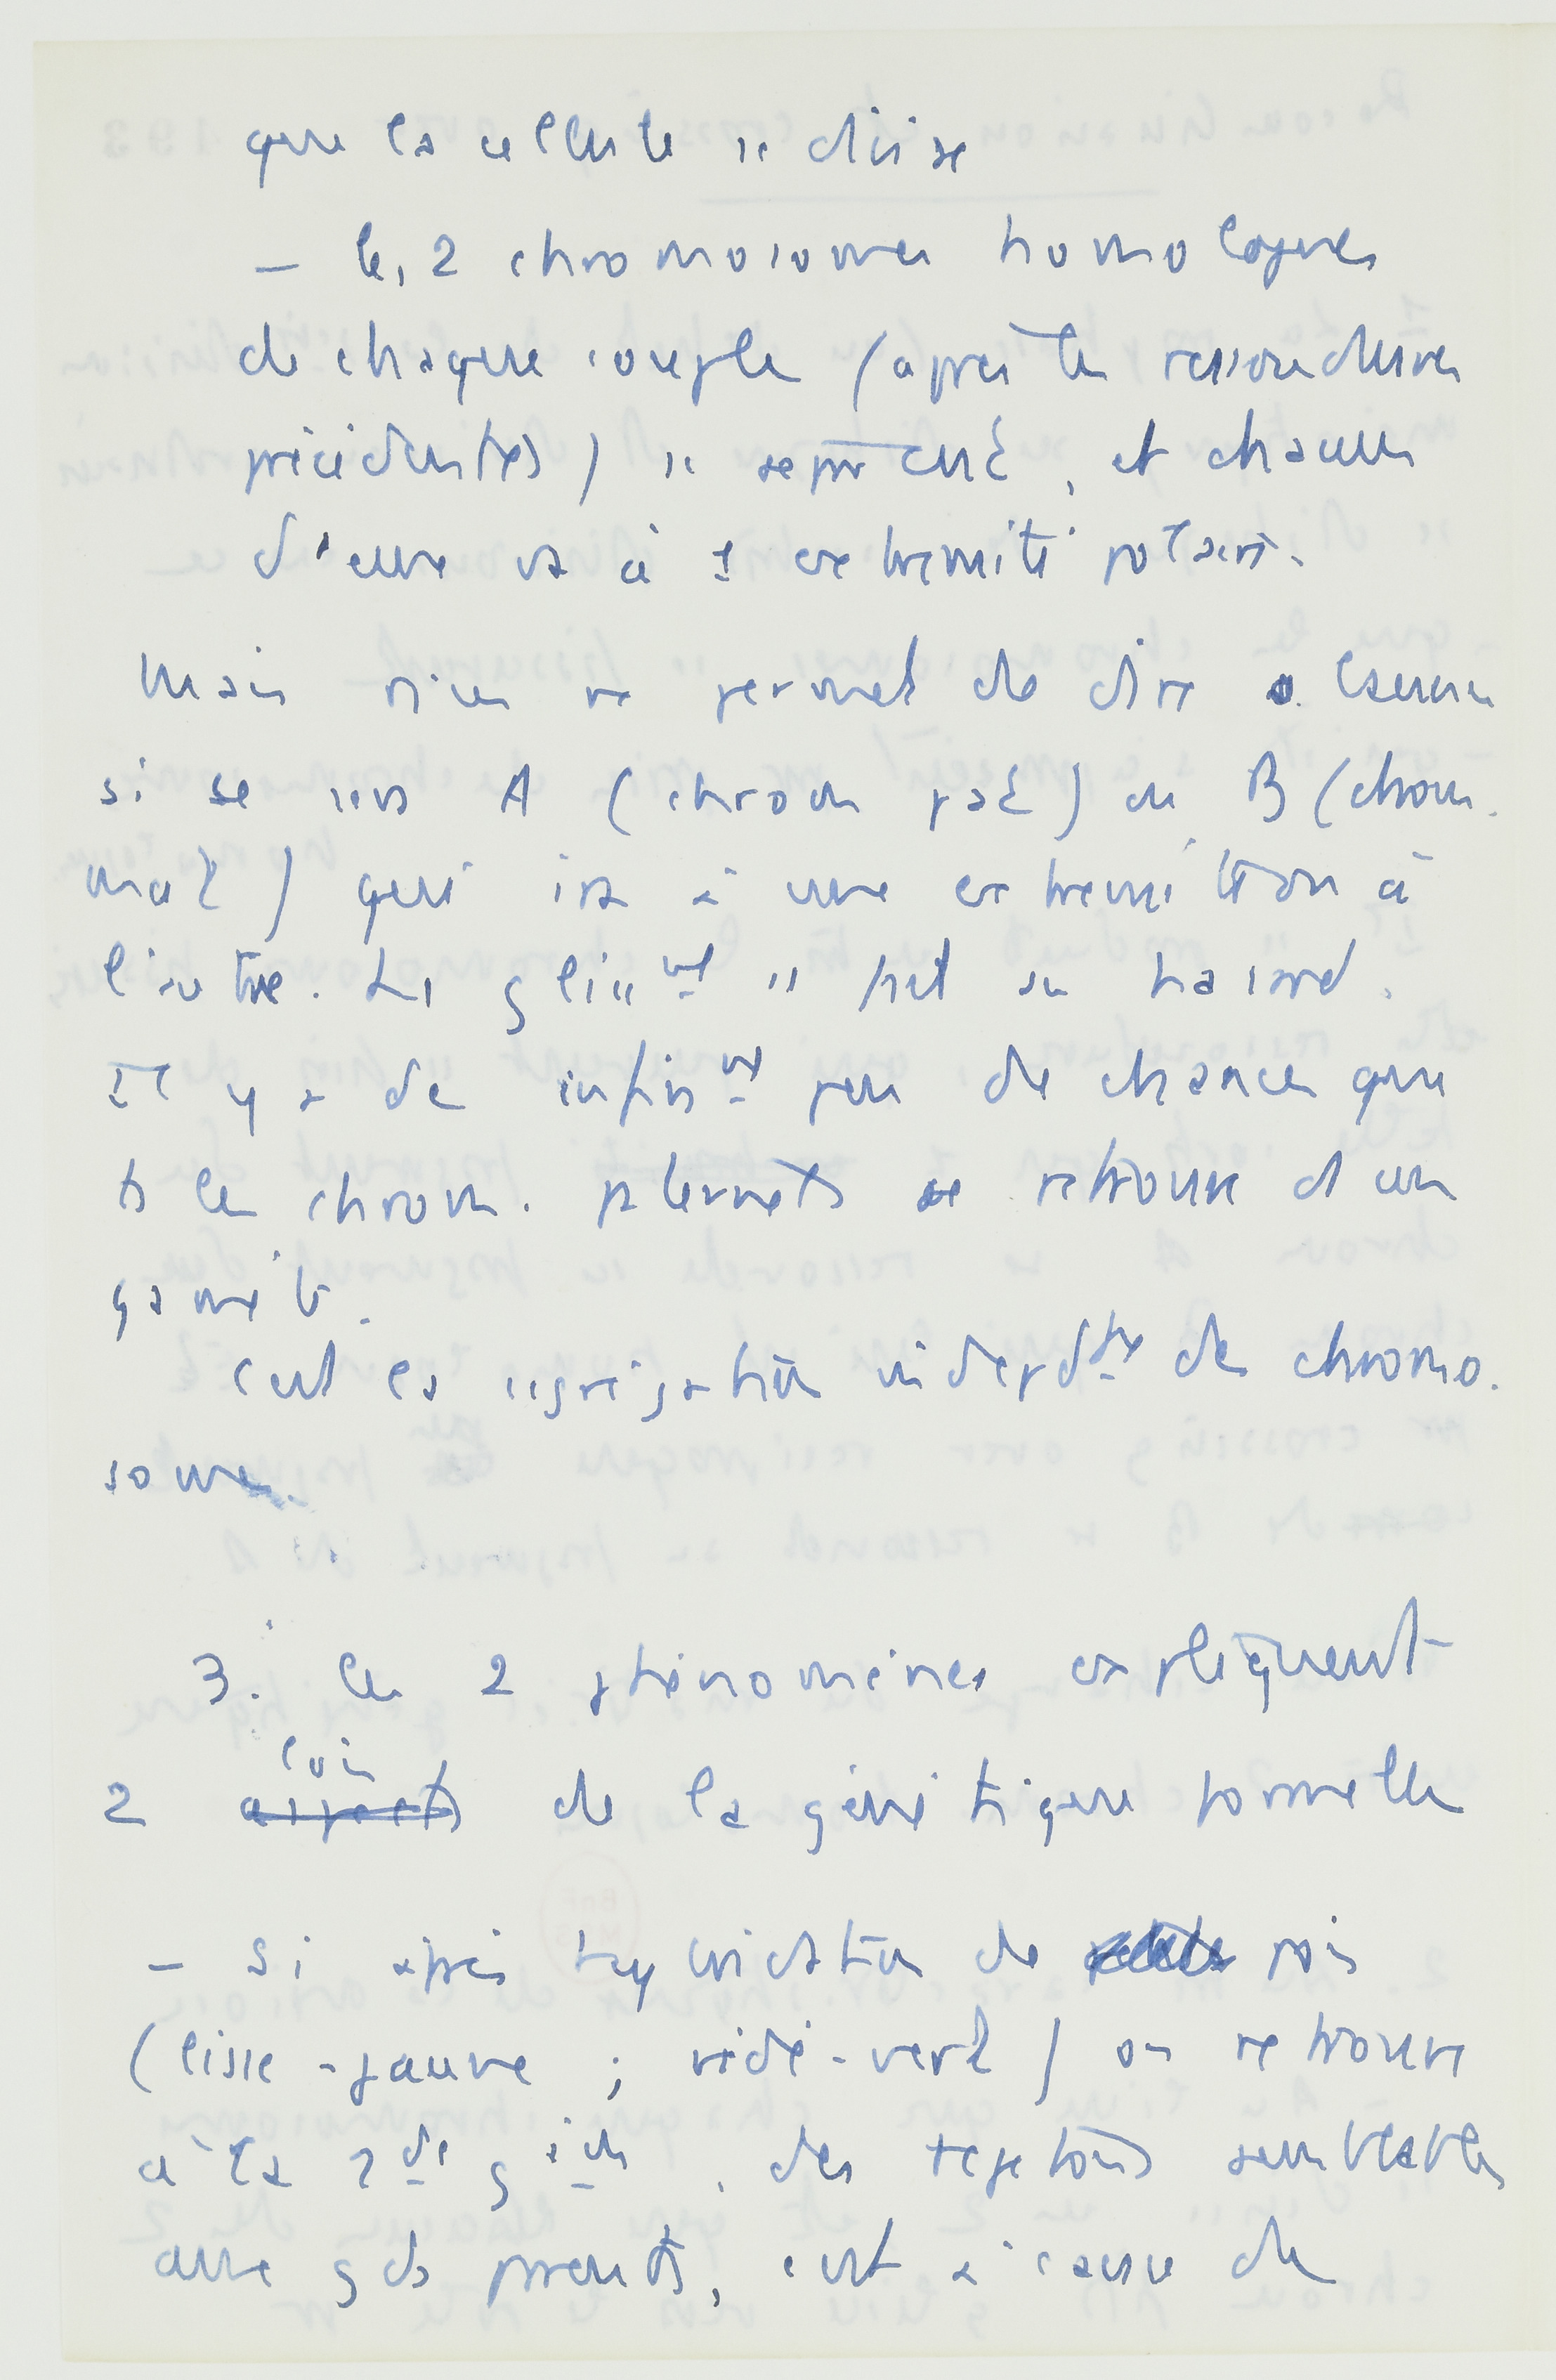 que la cellule se divise
– les 2 chromosomes homologues
de chaque couple (après les ressoudures
précédentes) se séparent, et chacun
d'eux va à 1 extrémité polaire.
Mais rien ne permet de dire
si ce sera A (chrom pat) ou B (chrom.
mat) qui ira à une extrémité ou à
l'autre. Le gliss^nt se fait au hasard.
Il y a de infini^nt peu de chances que
ts les chrom. paternels se retrouve ds un
gamète.
C'est la ségrégation indepd^te des chromo.
somes.
3. les 2 phénomènes expliquent
2 ~~aspects~~ lois de la génétique formelle
– Si après hybridation de pois
(lisse-jaune ; ridé-vert) on retrouve
à la 2^de g^ion, des rejetons semblables
aux gds parents, c'est à cause de